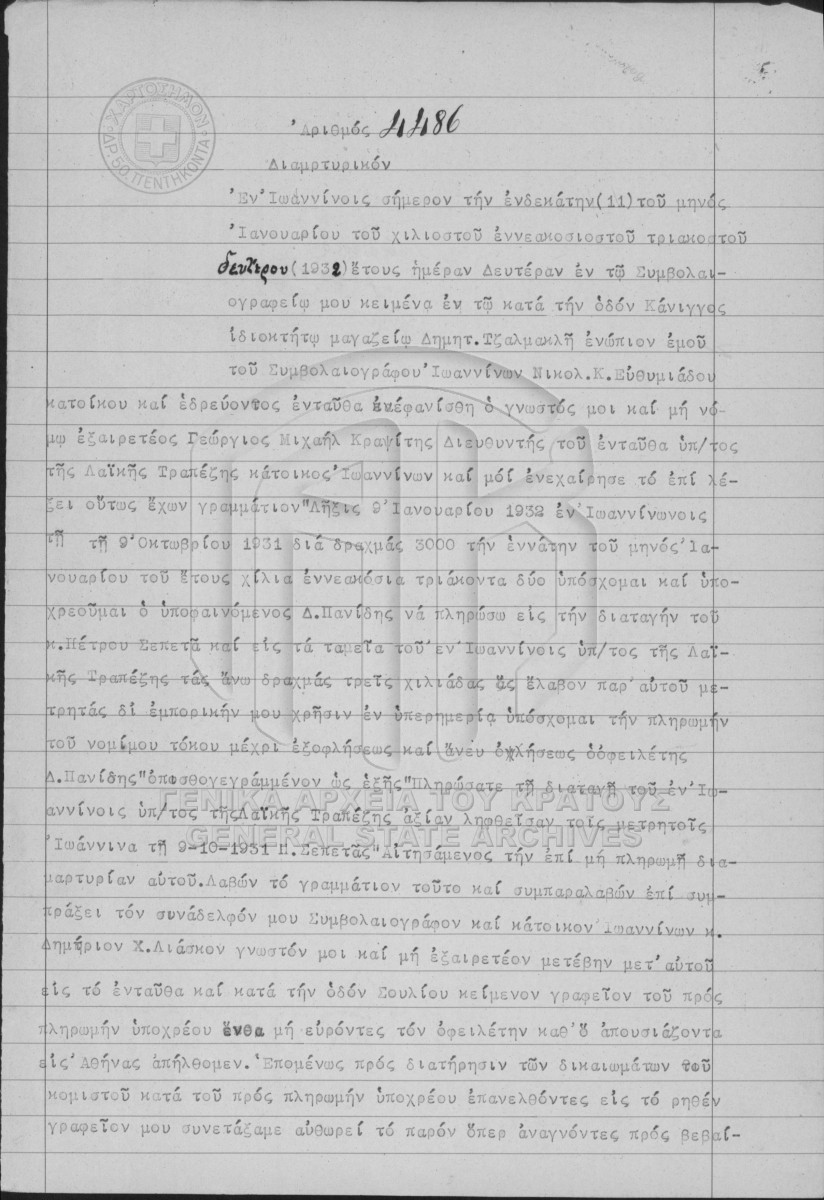 ΧΑΡΤΟΣΗΜΟΝ
ΔΡ. 50. ΠΕΝΤΗΚΟΝΤΑ
Ἀριθμός 4486
Διαμρτυρικόν
Ἐν Ἰωαννίνοις σήμερον τήν ἐνδεκάτην(11)τοῦ μηνός
Ἰανουαρίου τοῦ χιλιοστοῦ ἐννεακοσιοστοῦ τριακοστοῦ
δευτέρου(1932)ἔτους ἡμέραν Δευτέραν ἐν τῷ Συμβολαι-
ογραφείῳ μου κειμένα ἐν τῷ κατά τήν ὁδόν Κάνιγγος
ἰδιοκτήτῳ μαγαζείῳ Δημητ.Τζαλμακλῆ ἐνώπιον ἐμοῦ
τοῦ Συμβολαιογράφου Ἰωαννίνων Νικολ.Κ.Εὐθυμιάδου
κατοίκου καί ἑδρεύοντος ἐνταῦθα ἐνεφανίσθη ὁ γνωστός μοι καί μή νό-
μῳ ἐξαιρετέος Γεώργιος Μιχαήλ Κραψίτης Διευθυντής τοῦ ἐνταῦθα ὑπ/τος
τῆς Λαϊκῆς Τραπέζης κάτοικος Ἰωαννίνων καί μοί ἐνεχαίρησε τό ἐπί λέ-
ξει οὕτως ἔχων γραμμάτιον"Λῆξις 9 Ἰανουαρίου 1932 ἐν Ἰωαννίνωνοις
τῇ τῇ 9 Ὀκτωβρίου 1931 διά δραχμάς 3000 τήν ἐννάτην τοῦ μηνός Ἰα-
νουαρίου τοῦ ἔτους χίλια ἐννεακόσια τριάκοντα δύο ὑπόσχομαι καί ὑπο-
χρεοῦμαι ὁ ὑποφαινόμενος Δ.Πανίδης νά πληρώσω εἰς τήν διαταγήν τοῦ
κ.Πέτρου Σεπετᾶ καί εἰς τά ταμεῖα τοῦ ἐν Ἰωαννίνοις ὑπ/τος τῆς Λαϊ-
κῆς Τραπέζης τάς ἄνω δραχμάς τρεῖς χιλιάδας ἅς ἔλαβον παρ' αὐτοῦ με-
τρητάς δί ἐμπορικήν μου χρῆσιν ἐν ὑπερημερίᾳ ὑπόσχομαι τήν πληρωμήν
τοῦ νομίμου τόκου μέχρι ἐξοφλήσεως καί ἄνευ ὀχλήσεως ὁὀφειλέτης
Δ.Πανίδης"ὀπισθογεγραμμένον ὡς ἑξῆς"Πληρώσατε τῇ διαταγῇ τοῦ ἐν Ἰω-
αννίνοις ὑπ/τος τῆςΛαϊκῆς Τραπέζης ἀξίαν ληφθεῖσαν τοῖς μετρητοῖς
Ἰωάννινα τῇ 9-10-1931 Π.Σεπετᾶς"Αἰτησάμενος τήν ἐπί μή πληρωμῇ δια-
μαρτυρίαν αὐτοῦ.Λαβών τό γραμμάτιον τοῦτο καί συμπαραλαβών ἐπί συμ-
πράξει τόν συνάδελφόν μου Συμβολαιογράφον καί κάτοικον Ἰωαννίνων κ.
Δημήριον Χ.Λιάσκον γνωστόν μοι καί μή ἐξαιρετέον μετέβην μετ' αὐτοῦ
εἰς τό ἐνταῦθα καί κατά τήν ὁδόν Σουλίου κείμενον γραφεῖον τοῦ πρός
πληρωμήν ὑποχρέου ἔνθα μή εὑρόντες τόν ὀφειλέτην καθ' ὅ ἀπουσιάζοντα
εἰς Ἀθήνας ἀπήλθομεν. Ἑπομένως πρός διατήρησιν τῶν δικαιωμάτων τοῦ
κομιστοῦ κατά τοῦ πρός πληρωμήν ὑποχρέου ἐπανελθόντες εἰς τό ρηθέν
γραφεῖον μου συνετάξαμε αὐθωρεί τό παρόν ὅπερ ἀναγνόντες πρός βεβαί-
ΓΕΝΙΚΑ ΑΡΧΕΙΑ ΤΟΥ ΚΡΑΤΟΥΣ
GENERAL STATE ARCHIVES